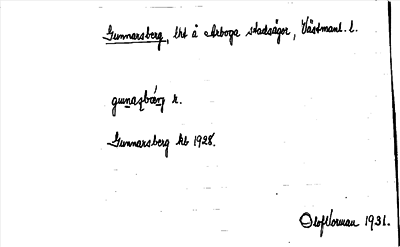 Gunnarsberg, lht å Arboga stadsägor, Västmanl. l.
gunaʂbærj r.
Gunnarsberg kb 1928.
Olof Norman 1931.